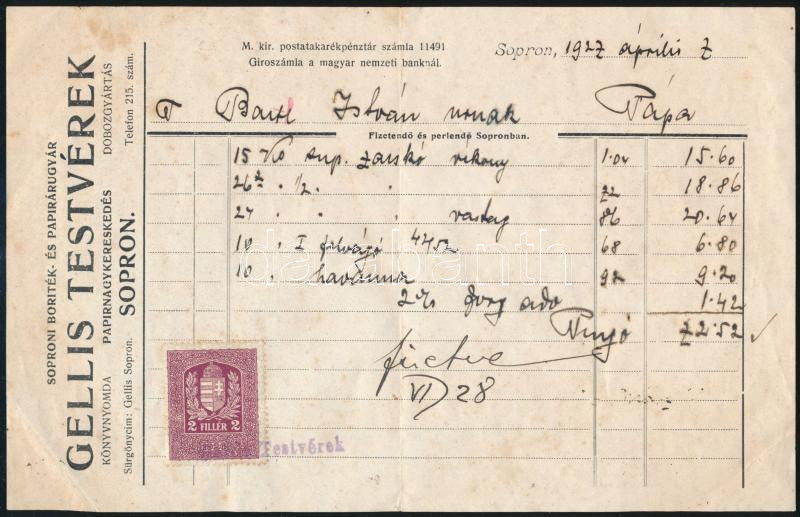 SOPRONI BORITÉK- ÉS PAPIRÁRUGYÁR
GELLIS TESTVÉREK
KÖNYVNYOMDA PAPIRNAGYKERESKEDÉS DOBOZGYÁRTÁS
SOPRON.
Sürgönycim: Gellis Sopron. Telefon 215. szám.
M. kir. postatakarékpénztár számla 11491
Giroszámla a magyar nemzeti banknál.
Sopron, 1927 április 7
T István urnak Pápa
Fizetendő és perlendő Sopronban.
15 sup. zaskó vékony 1.04 15.60
26 1/2 " " 72 18.86
24 " " vastag 86 20.64
10 I 68 6.80
10 havanna 92 9.20
2% forg adó 1.42
Pengő 72.52
fizetve
VI/28
2 FILLÉR 2
Testvérek
darabanth